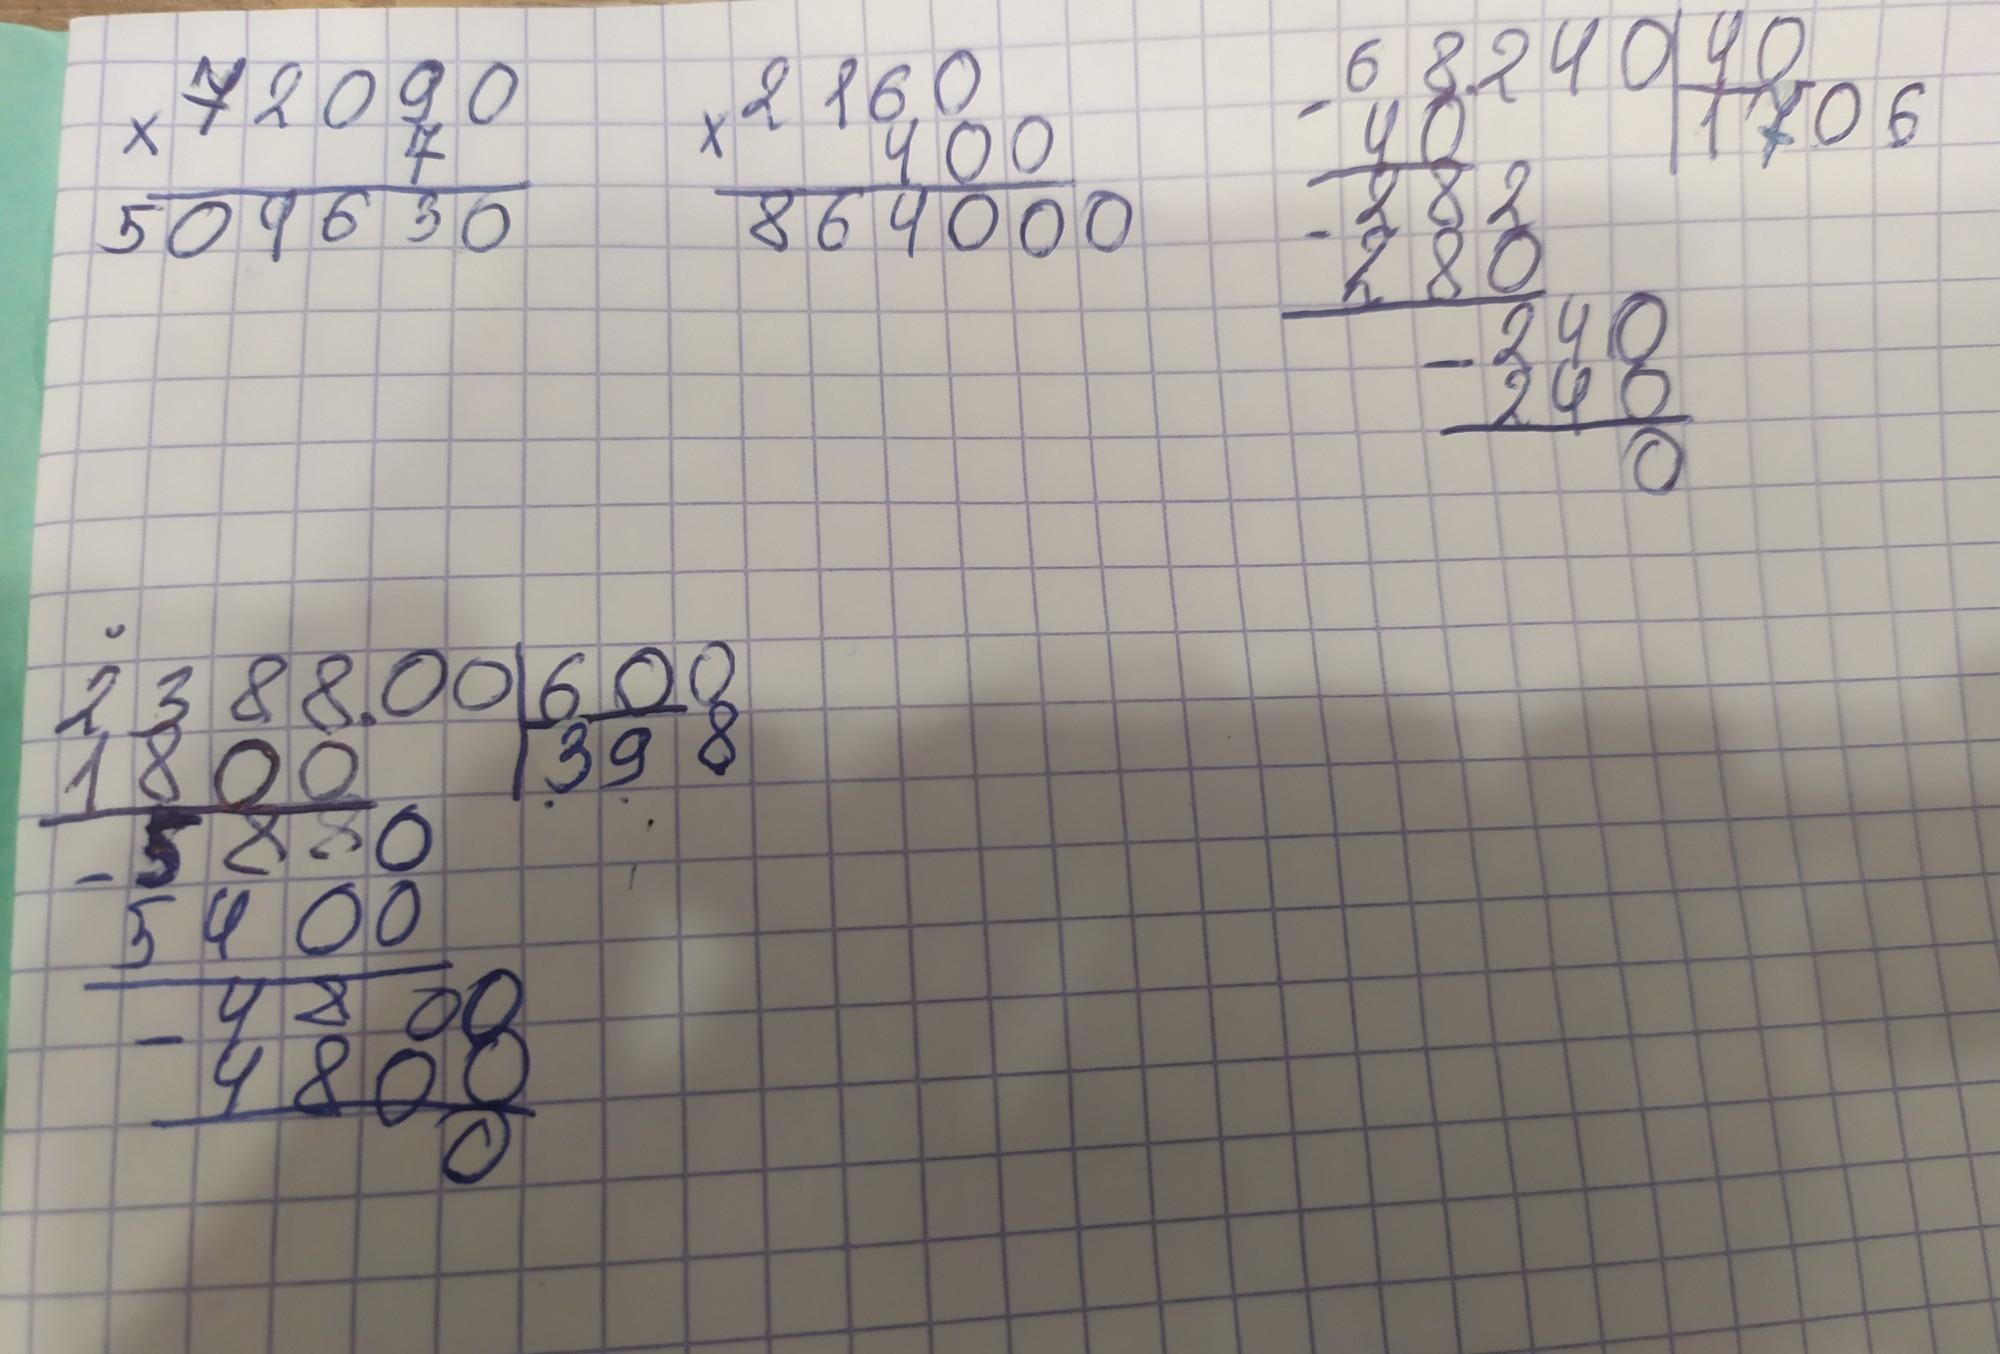 × 72090
7
504630
× 2160
400
864000
- 68.240 | 40
40 | 1706
- 282
280
- 240
240
0
2388.00 | 600
1800 | 398
- 5880
5400
- 4800
4800
0